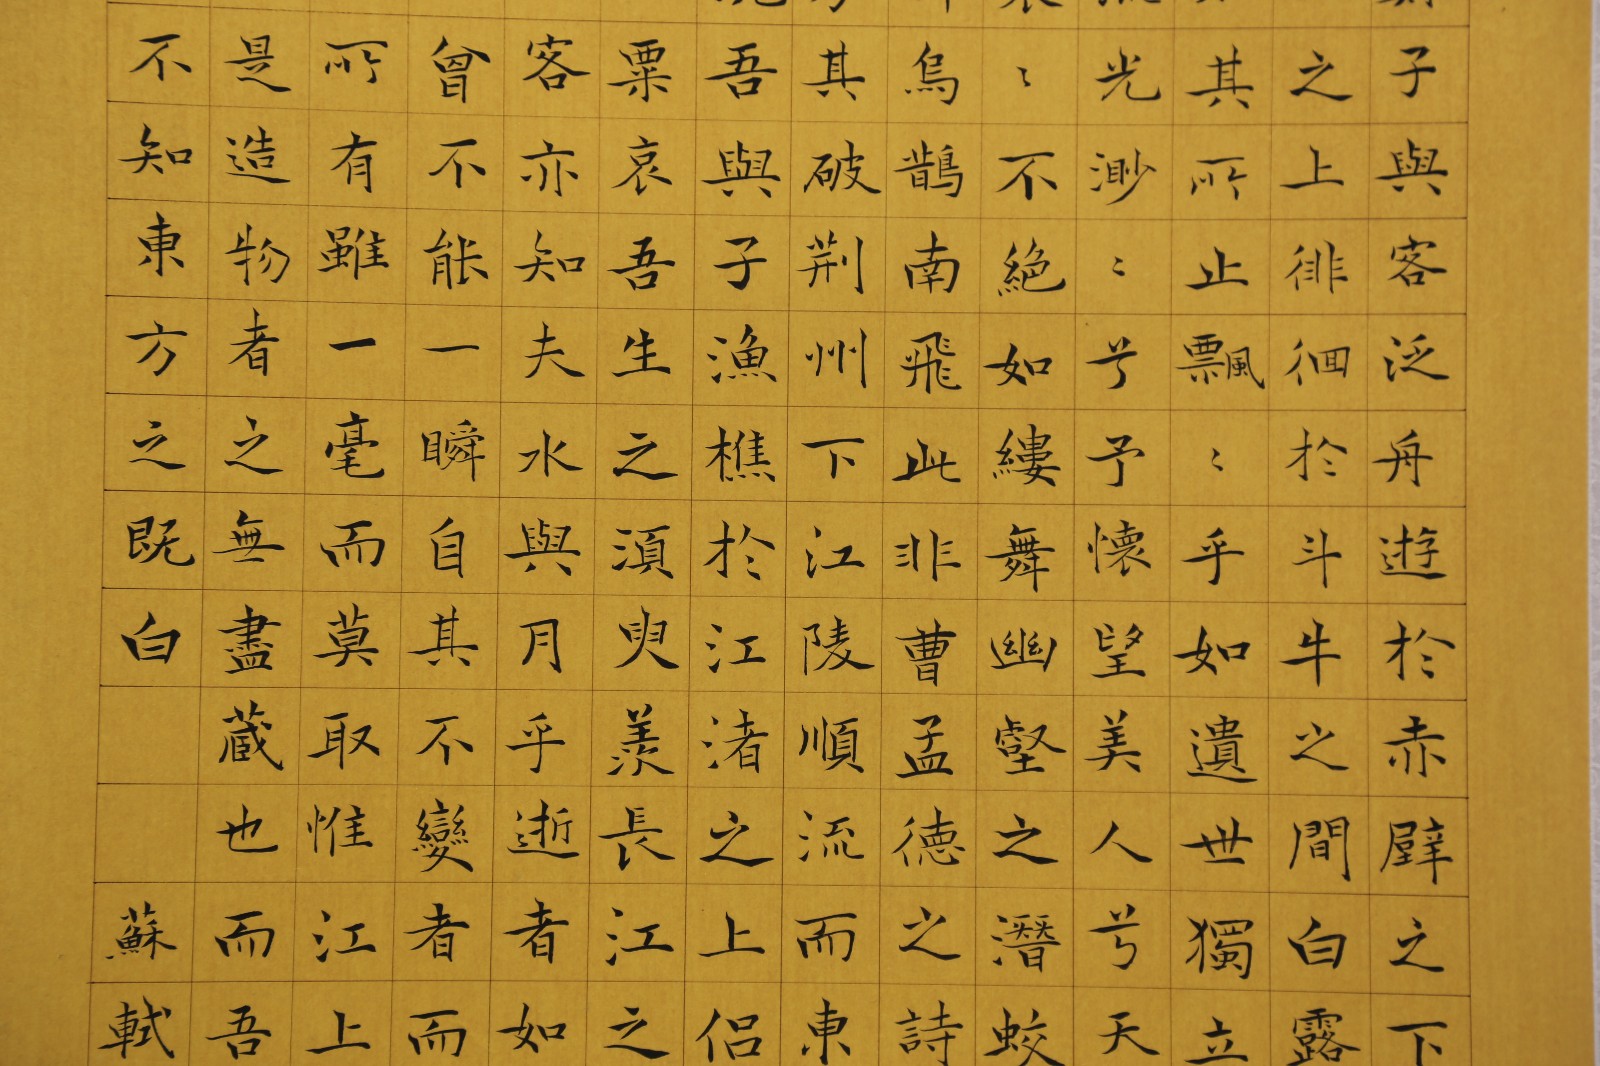 子與客泛舟遊於赤壁之下
之上徘徊於斗牛之間白露
其所止飄〻乎如遺世獨立
光渺〻兮予懷望美人兮天
〻不絕如縷舞幽壑之潛蛟
烏鵲南飛此非曹孟德之詩
其破荆州下江陵順流而東
吾與子漁樵於江渚之上侣
粟哀吾生之湏臾羨長江之
客亦知夫水與月乎逝者如
曾不能一瞬自其不變者而
所有雖一毫而莫取惟江上
是造物者之無盡蔵也而吾
不知東方之既白 蘇軾